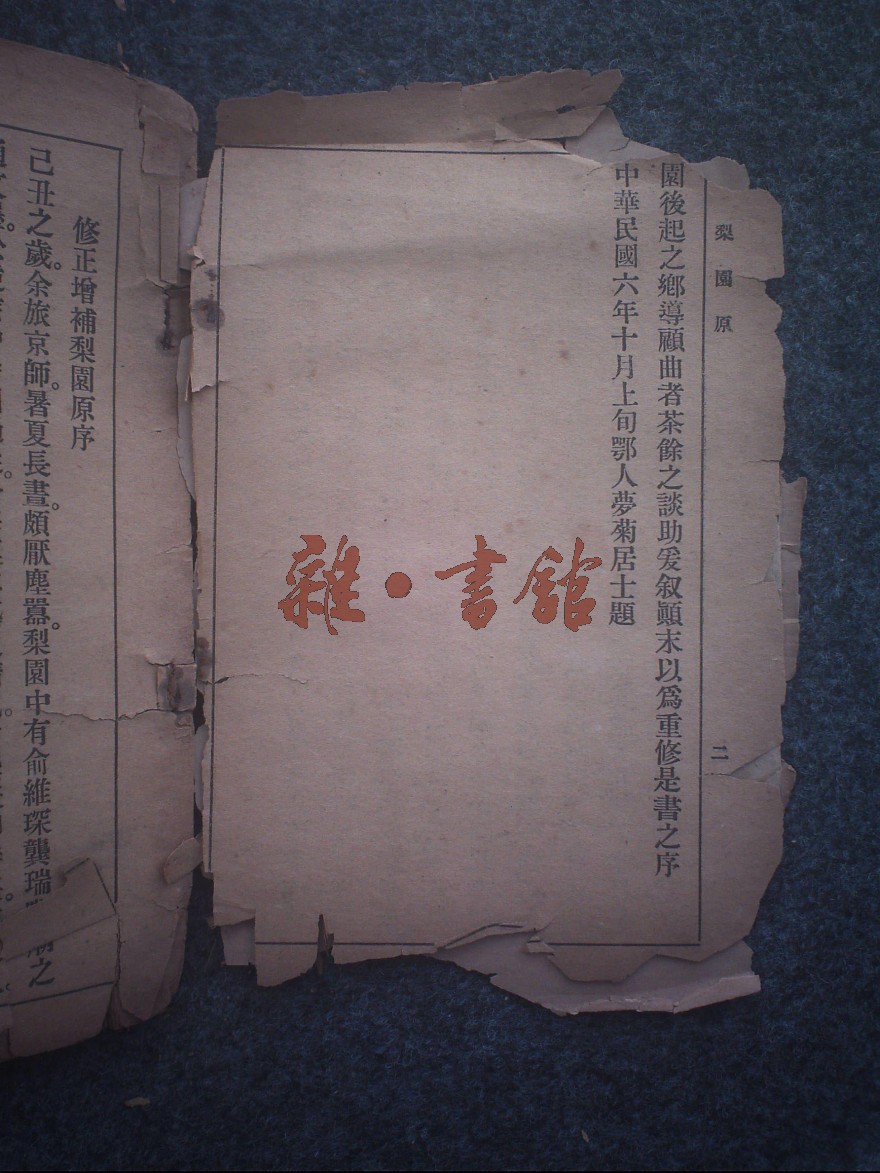 梨園原
二
園後起之鄉導顧曲者茶餘之談助爰叙顚末以爲重修是書之序
中華民國六年十月上旬鄂人夢菊居士題
雜·書館
修正增補梨園原序
己丑之歲。余旅京師。暑夏長晝。頗厭塵囂。梨園中有俞維琛龔瑞
之